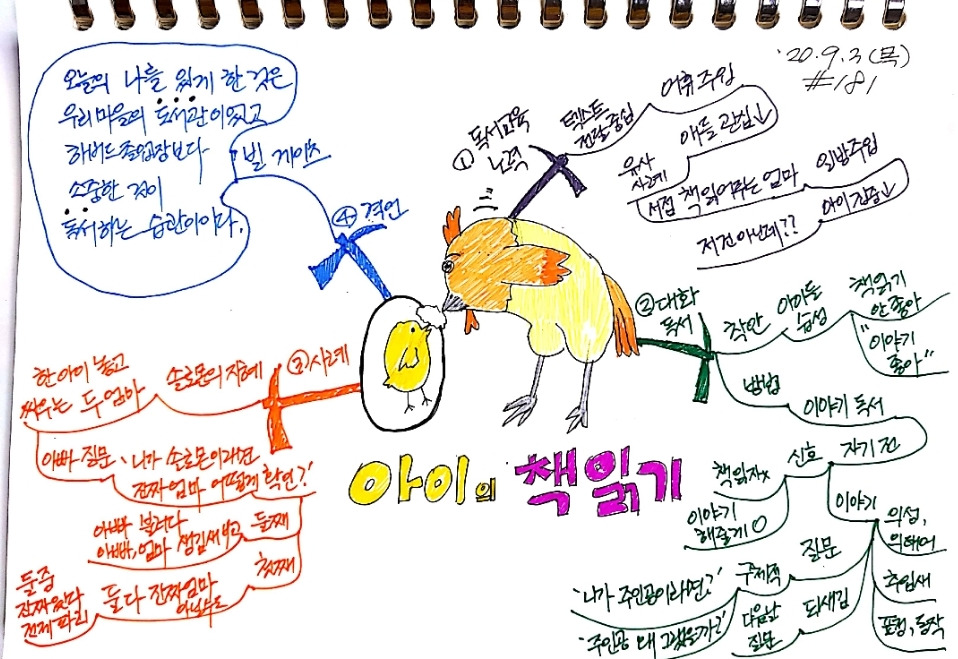 '20.9.3(목)
#181
아이의 책읽기
① 독서교육
노력
텍스트
전달중심
어휘주입
애들 관심↓
유사
사례
서점 책읽어주는 엄마
일방주입
아이집중↓
저건 아닌데??
② 대화
독서
착안
아이들
습성
책읽기
안좋아
"이야기
좋아"
방법
이야기 독서
자기 전
신호
책읽자x
이야기
해줄게 O
이야기
의성,
의태어
추임새
표정, 동작
질문
구체적
'나가 주인공이라면?'
되새김
다음날
질문
'주인공 왜 그랬을까?'
③ 사례
솔로몬의 지혜
한 아이 놓고
싸우는 두 엄마
아빠 질문
'니가 솔로몬이라면
진짜엄마 어떻게 확인?'
첫째
둘다 진짜엄마
아닐수도
둘중
진짜있다
전제 파괴
둘째
아빠 불러다
아빠, 엄마 생김새 비교
④ 격언
빌 게이츠
오늘의 나를 있게 한 것은
우리 마을의 도서관이었고
하버드 졸업장보다
소중한 것이
독서하는 습관이이다.